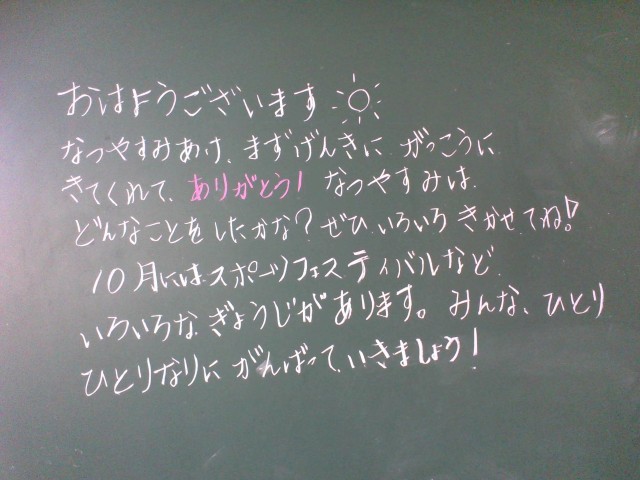 おはようございます
なつやすみあけ、まずげんきに がっこうに
きてくれて、ありがとう! なつやすみは
どんなことをしたかな?ぜひ いろいろ きかせてね!
10月にはスポーツフェスティバルなど
いろいろな ぎょうじがあります。みんな、ひとり
ひとりなりに がんばって いきましょう!